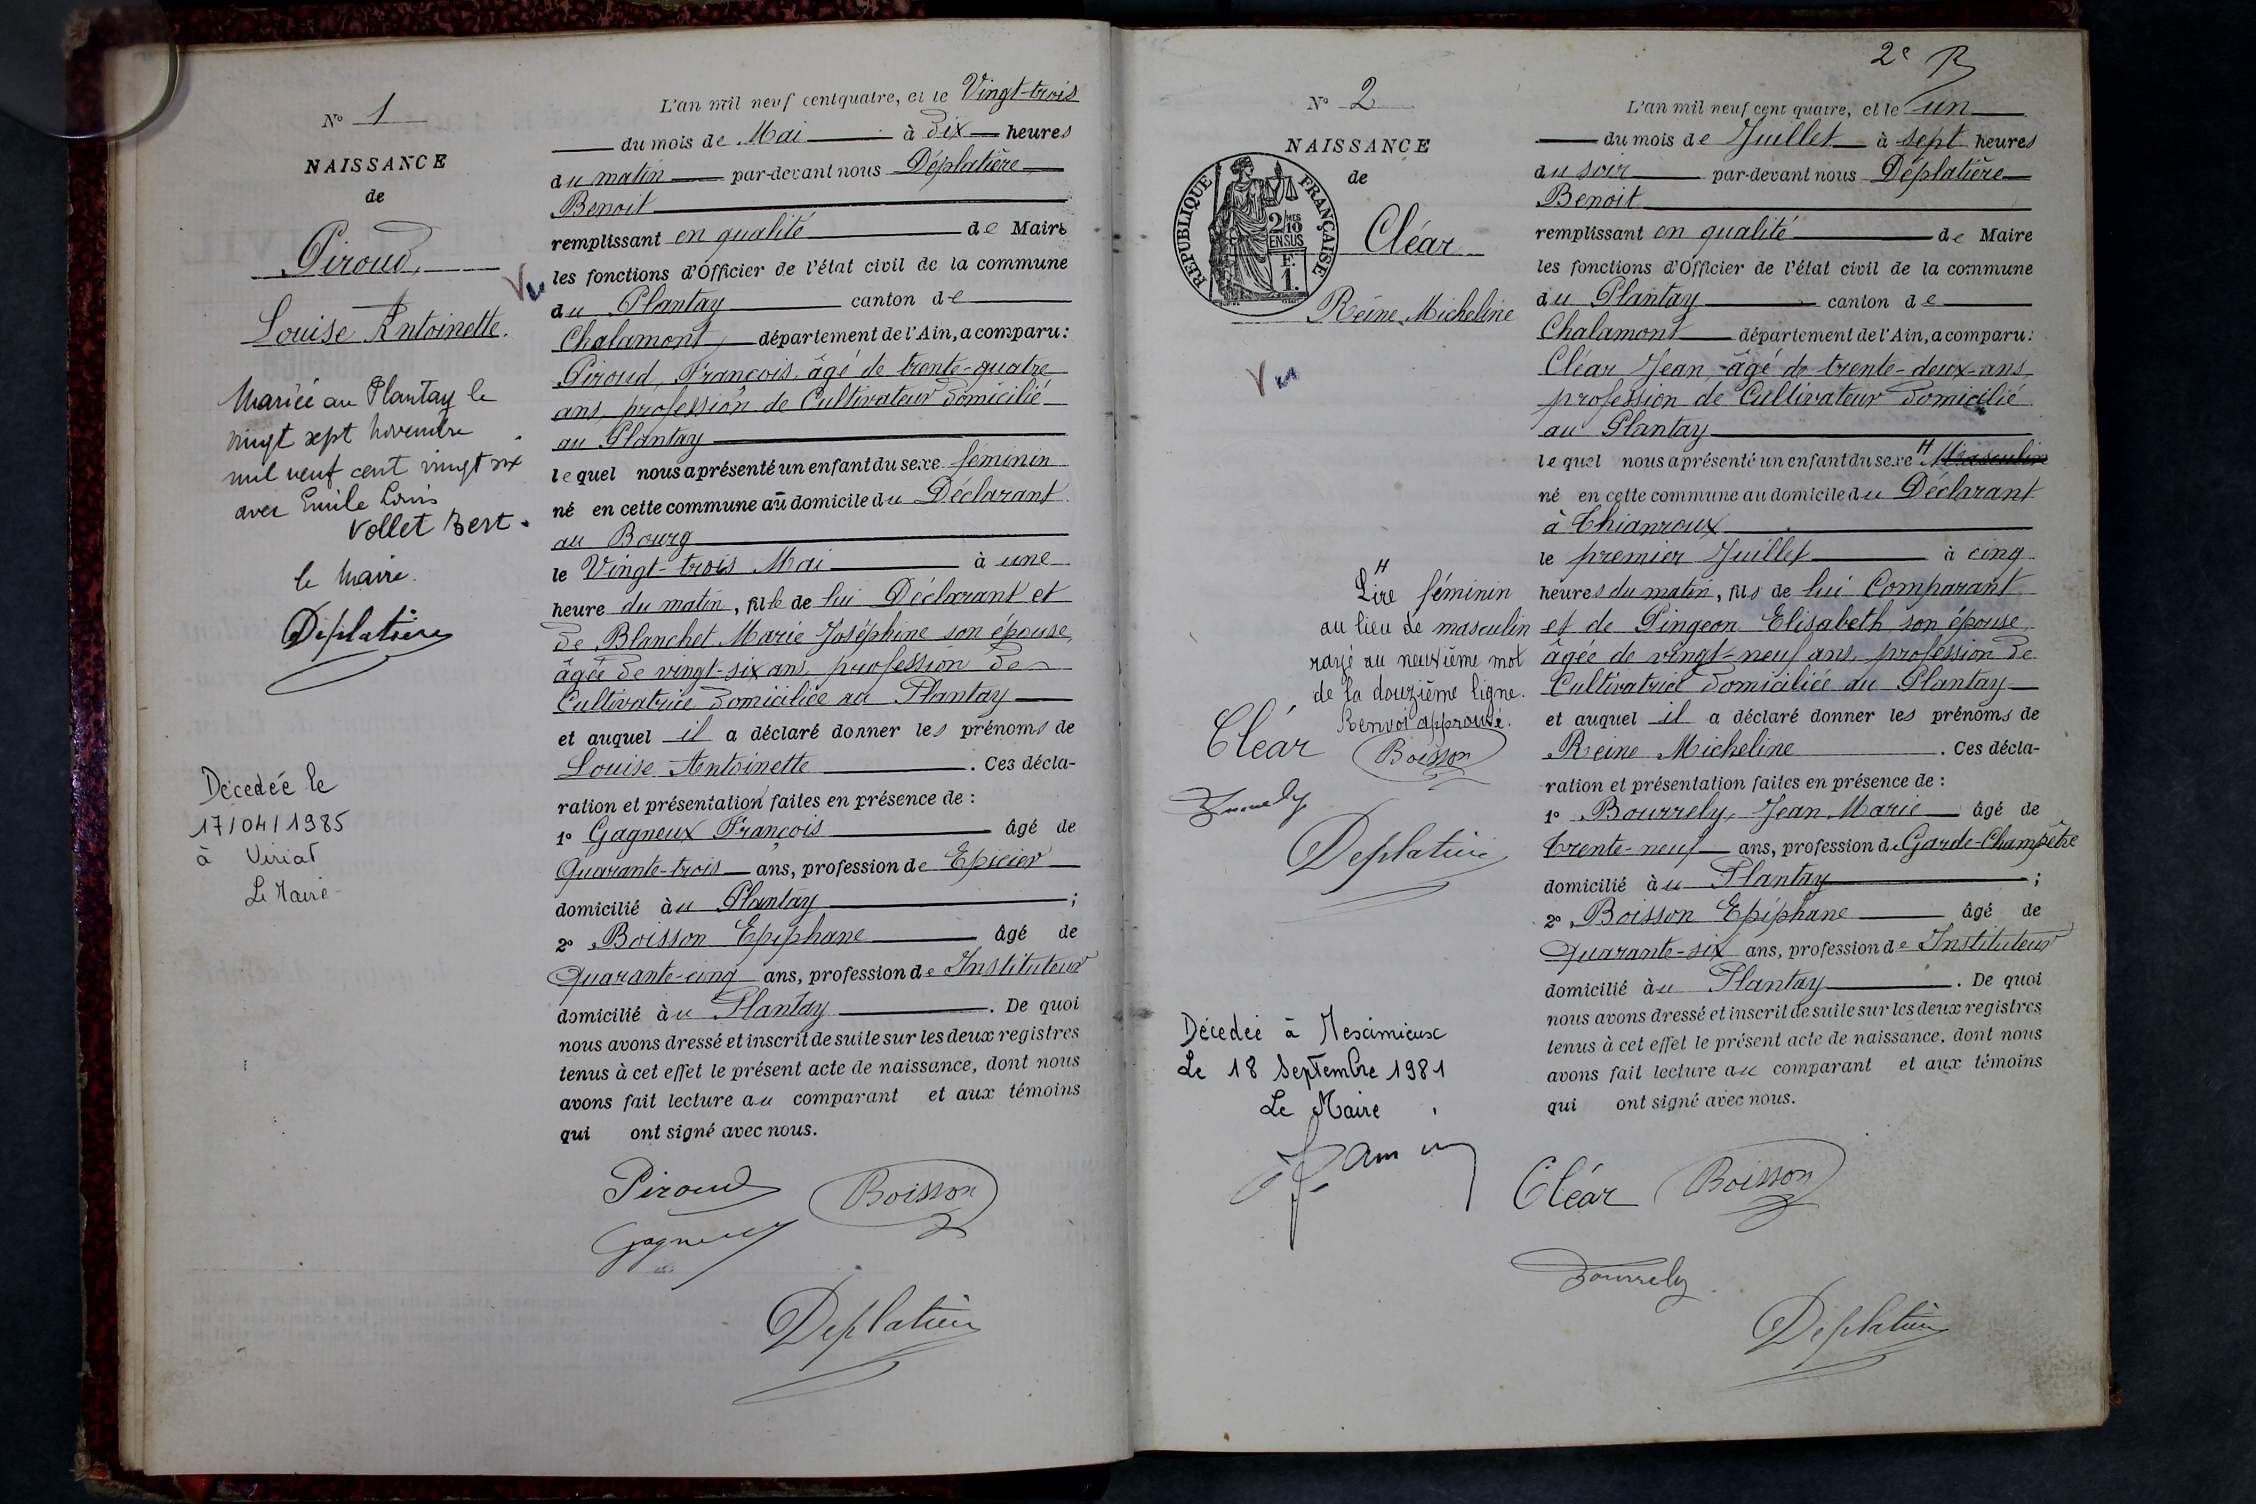 N° 1
NAISSANCE
de
Piroud
Louise Antoinette.
Mariée au Plantay le
vingt sept novembre
mil neuf cent vingt six
avec Emile Louis
Vollet Bert.
le Maire.
Déplatière
Décedée le
17/04/1985
à Viriat
Le Maire
L'an mil neuf cent quatre, et le Vingt-trois
du mois de Mai à Dix heures
du matin par-devant nous Déplatière
Benoit
remplissant en qualité de Maire
Vu
les fonctions d'Officier de l'état civil de la commune
du Plantay canton de
Chalamont département de l'Ain, a comparu:
Piroud, François, âgé de trente-quatre
ans, profession de Cultivateur domicilié
au Plantay
lequel nous a présenté un enfant du sexe féminin
né en cette commune au domicile du Déclarant
au Bourg
le Vingt-trois Mai à une
heure du matin, fille de lui Déclarant et
de Blanchet Marie Joséphine son épouse,
âgée de vingt-six ans, profession de
Cultivatrice domiciliée au Plantay
et auquel il a déclaré donner les prénoms de
Louise Antoinette. Ces décla-
ration et présentation faites en présence de :
1° Gagneux François âgé de
Quarante-trois ans, profession de Epicier
domicilié au Plantay ;
2° Boisson Epiphane âgé de
Quarante-cinq ans, profession de Instituteur
domicilié au Plantay. De quoi
nous avons dressé et inscrit de suite sur les deux registres
tenus à cet effet le présent acte de naissance, dont nous
avons fait lecture au comparant et aux témoins
qui ont signé avec nous.
Piroud Boisson
Gagneux
Déplatière
2e
N° 2
NAISSANCE
de
REPUBLIQUE FRANÇAISE
2/10 MES
EN SUS
F.
1.
Cléar
Reine Micheline
Vu
H
Lire féminin
au lieu de masculin
rayé au neuvième mot
de la douzième ligne.
Renvoi approuvé.
Cléar Boisson
Bourrely
Déplatière
Décedée à Meximieux
Le 18 Septembre 1981
Le Maire
L'an mil neuf cent quatre, et le un
du mois de Juillet à sept heures
du soir par-devant nous Déplatière
Benoit
remplissant en qualité de Maire
les fonctions d'Officier de l'état civil de la commune
du Plantay canton de
Chalamont département de l'Ain, a comparu:
Cléar Jean, âgé de trente-deux ans,
profession de Cultivateur domicilié
au Plantay
lequel nous a présenté un enfant du sexe H Masculin
né en cette commune au domicile du Déclarant
à Chianroux
le premier Juillet à cinq
heures du matin, fils de lui Comparant
et de Pingeon Elisabeth son épouse,
âgée de vingt-neuf ans, profession de
Cultivatrice domiciliée au Plantay
et auquel il a déclaré donner les prénoms de
Reine Micheline. Ces décla-
ration et présentation faites en présence de :
1° Bourrely, Jean Marie âgé de
trente-neuf ans, profession de Garde-Champêtre
domicilié au Plantay ;
2° Boisson Epiphane âgé de
Quarante-six ans, profession de Instituteur
domicilié au Plantay. De quoi
nous avons dressé et inscrit de suite sur les deux registres
tenus à cet effet le présent acte de naissance, dont nous
avons fait lecture au comparant et aux témoins
qui ont signé avec nous.
Cléar Boisson
Bourrely
Déplatière